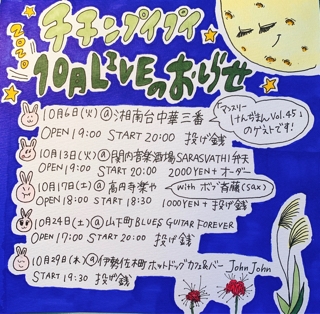 2020
チチンプイプイ
10月LIVEのおしらせ
10月6日(火)@湘南台中華三番
OPEN 19:00 START 20:00 投げ銭
マンスリー
けんがまんVol.45」
のゲストです!
10月13日(火)@関内音楽酒場SARASVATHI弁天
OPEN 19:00 START 20:00 2000YEN+オーダー
10月17日(土)@高円寺葉や
with ボブ斉藤(sax)
OPEN 18:00 START 18:30 1000YEN+投げ銭
10月24日(土)@山下町BLUES GUITAR FOREVER
OPEN 17:00 START 20:00 投げ銭
10月29日(木)@伊勢佐木町ホットドッグカフェ&バー John John
START 19:30 投げ銭